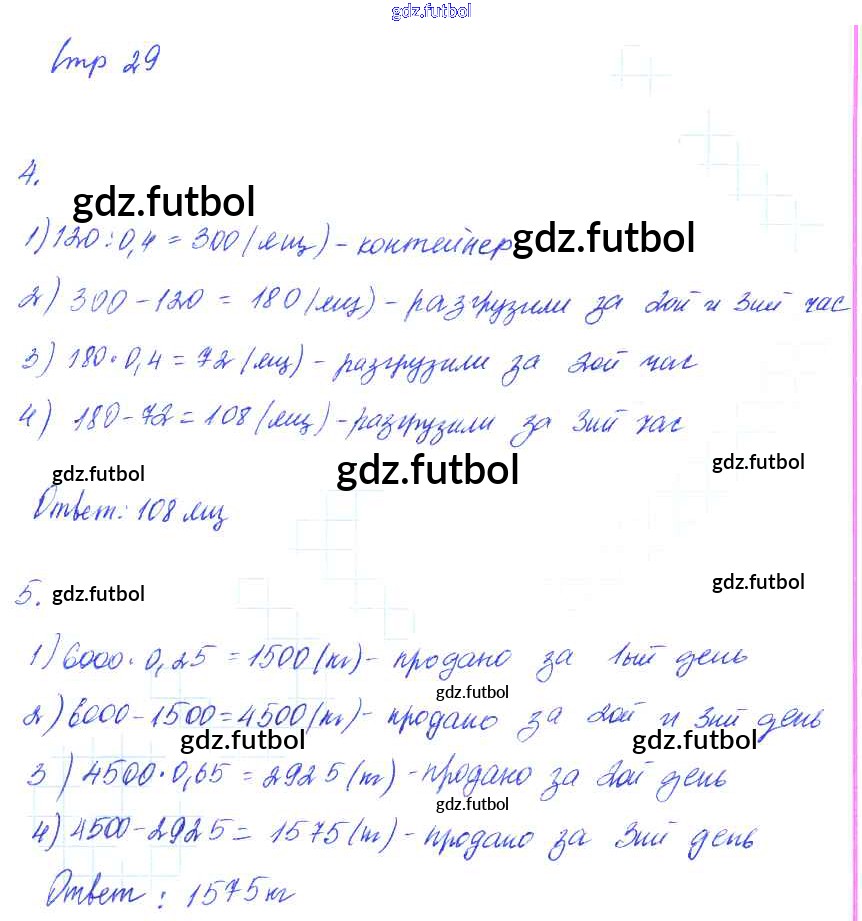 gdz.futbol
стр 29
4.
gdz.futbol
1) 120 : 0,4 = 300 (ящ) - контейнер
gdz.futbol
2) 300 - 120 = 180 (ящ) - разгрузили за 2ой и 3ий час
3) 180 · 0,4 = 72 (ящ) - разгрузили за 2ой час
4) 180 - 72 = 108 (ящ) - разгрузили за 3ий час
gdz.futbol gdz.futbol gdz.futbol
Ответ: 108 ящ
5. gdz.futbol gdz.futbol
1) 6000 · 0,25 = 1500 (кг) - продано за 1ый день
gdz.futbol
2) 6000 - 1500 = 4500 (кг) - продано за 2ой и 3ий день
gdz.futbol gdz.futbol
3) 4500 · 0,65 = 2925 (кг) - продано за 2ой день
gdz.futbol
4) 4500 - 2925 = 1575 (кг) - продано за 3ий день
Ответ: 1575 кг